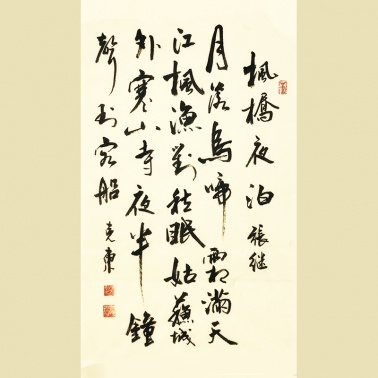 楓橋夜泊 張继
月落烏啼霜滿天
江楓漁對愁眠姑蘇城
外寒山寺夜半鐘
聲到客船 克東